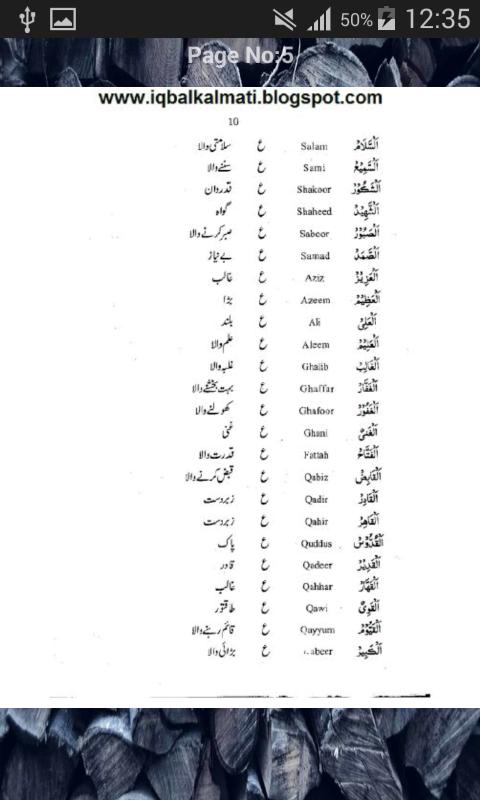 50% 12:35
Page No:5
www.iqbalkalmati.blogspot.com
10
اَلسَّلَامُ Salam ع سلامتی والا
اَلسَّمِيْعُ Sami ع سننے والا
اَلشَّكُوْرُ Shakoor ع قدردان
اَلشَّهِيْدُ Shaheed ع گواہ
اَلصَّبُوْرُ Saboor ع صبر کرنے والا
اَلصَّمَدُ Samad ع بے نیاز
اَلْعَزِيْزُ Aziz ع غالب
اَلْعَظِيْمُ Azeem ع بڑا
اَلْعَلِیُّ Ali ع بلند
اَلْعَلِيْمُ Aleem ع علم والا
اَلْغَالِبُ Ghalib ع غلبہ والا
اَلْغَفَّارُ Ghaffar ع بہت بخشنے والا
اَلْغَفُوْرُ Ghafoor ع کھولنے والا
اَلْغَنِیُّ Ghani ع غنی
اَلْفَتَّاحُ Fattah ع قدرت والا
اَلْقَابِضُ Qabiz ع قبض کرنے والا
اَلْقَادِرُ Qadir ع زبردست
اَلْقَاهِرُ Qahir ع زبردست
اَلْقُدُّوْسُ Quddus ع پاک
اَلْقَدِيْرُ Qadeer ع قادر
اَلْقَهَّارُ Qahhar ع غالب
اَلْقَوِیُّ Qawi ع طاقتور
اَلْقَيُّوْمُ Qayyum ع قائم رہنے والا
اَلْكَبِيْرُ abeer ع بڑائی والا